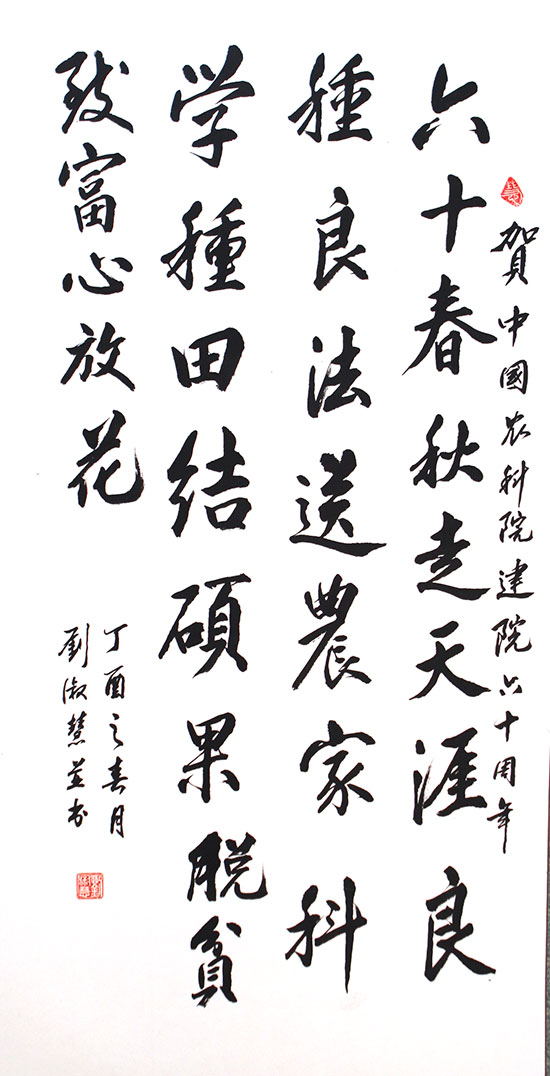 賀中國农科院建院六十周年
六十春秋走天涯良
種良法送農家科
学種田结碩果脱貧
致富心放花
丁酉之春月
劉淑慧並书